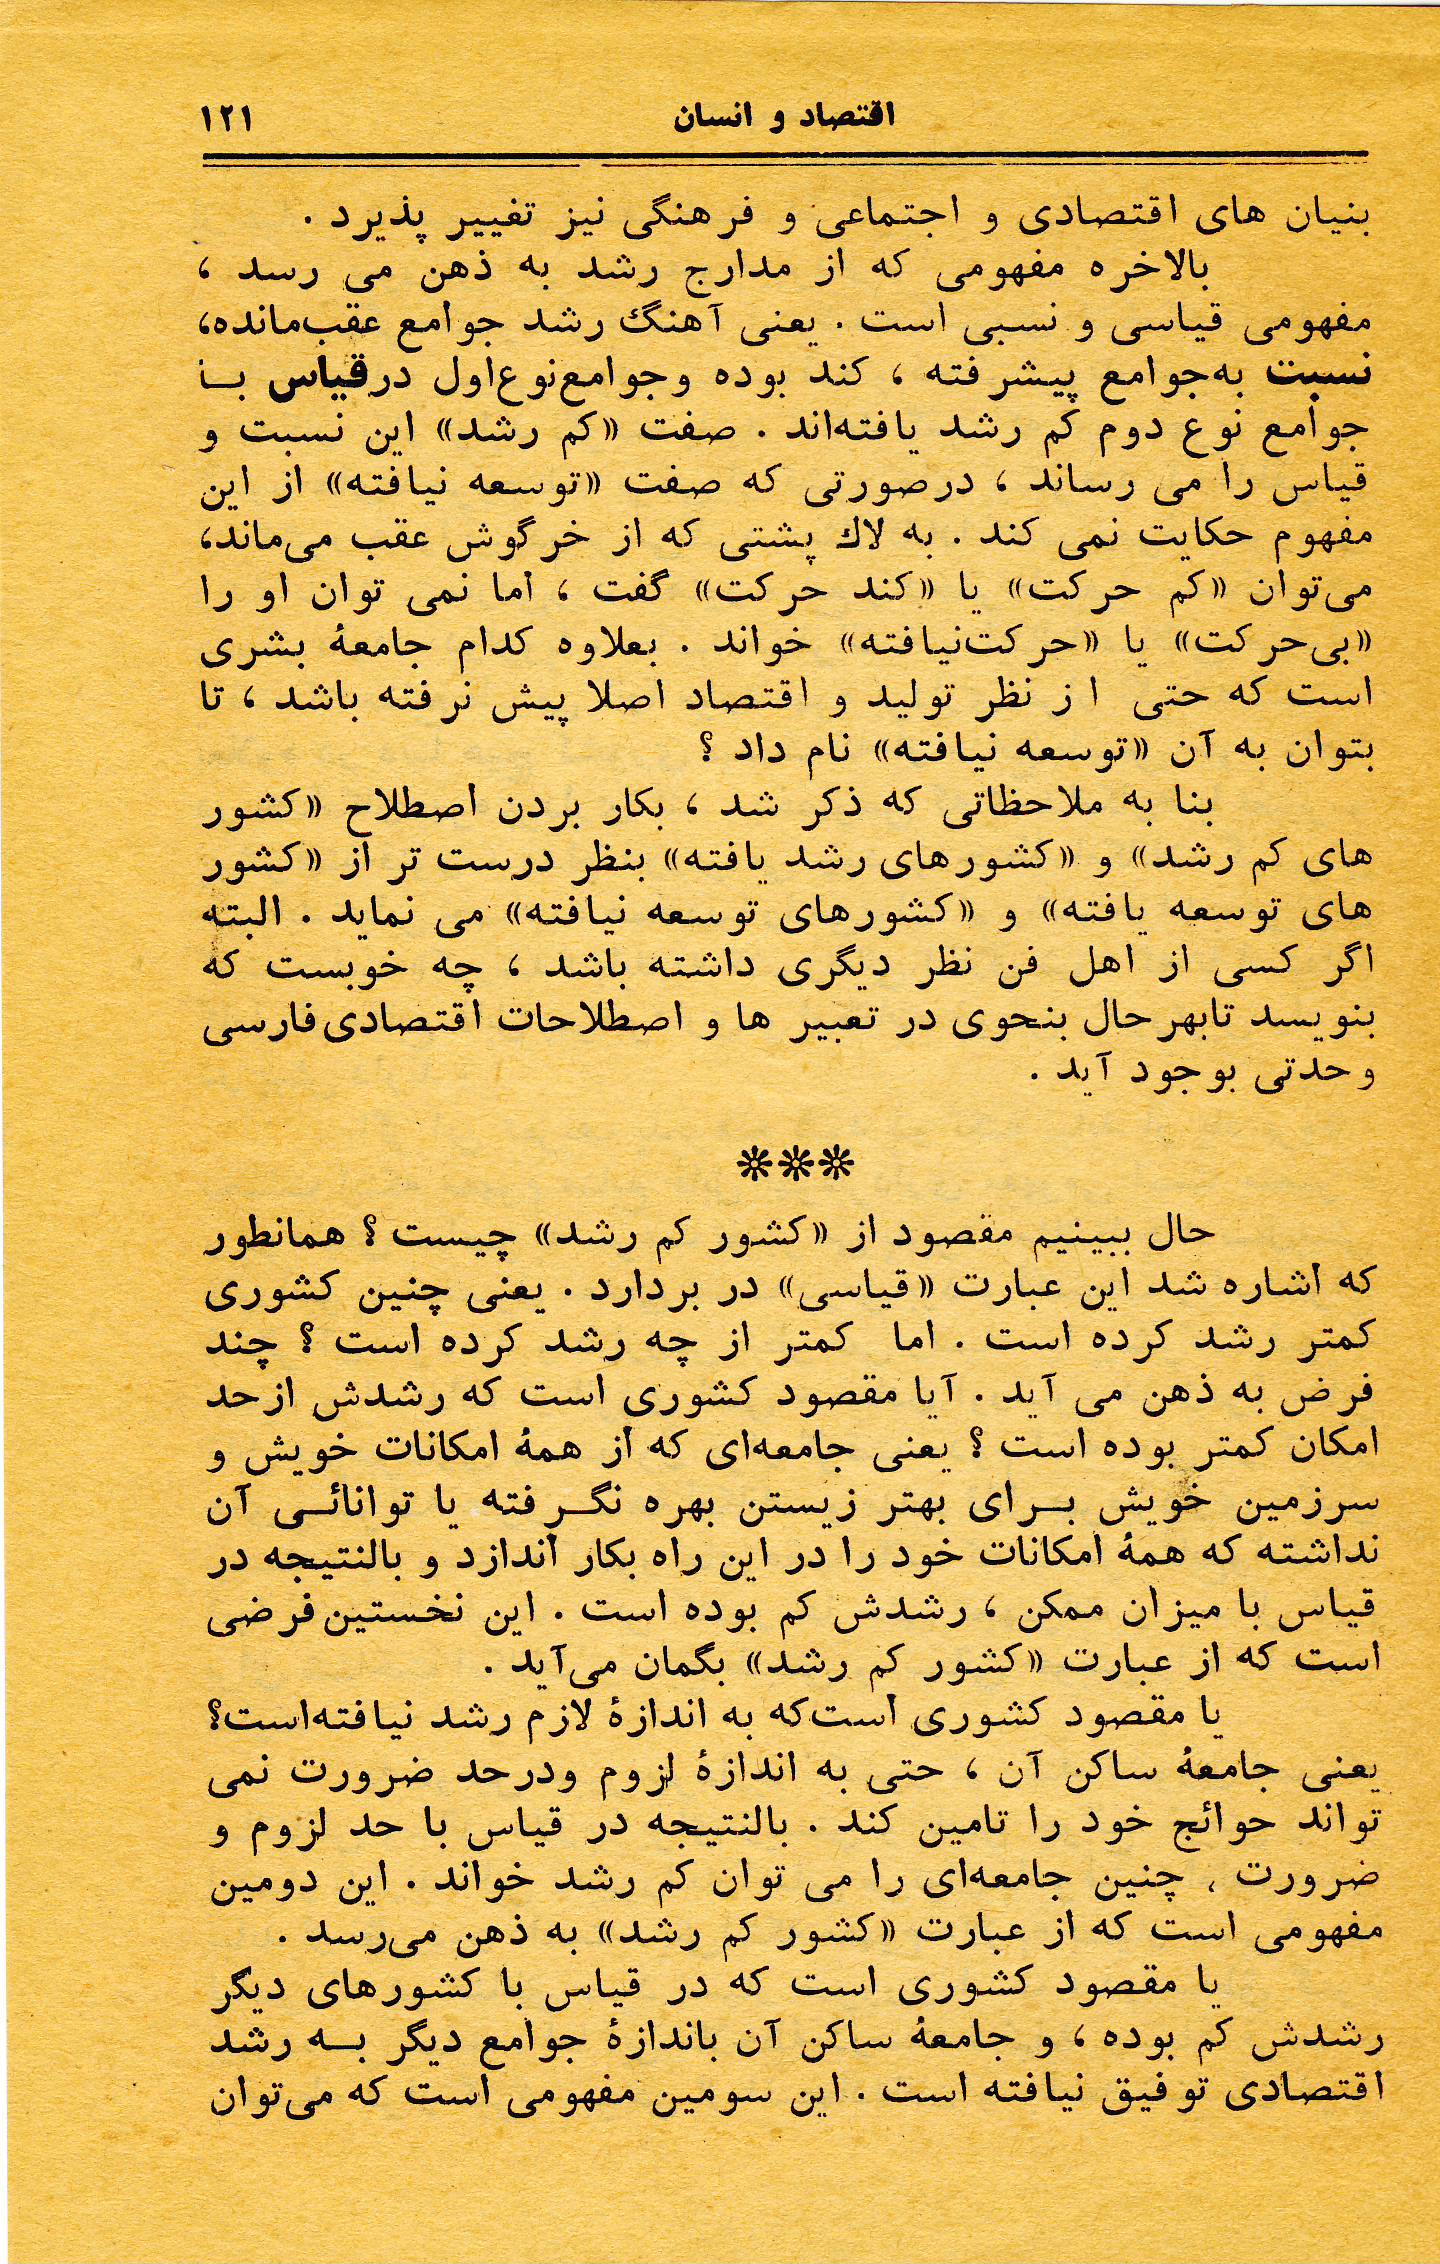 اقتصاد و انسان ۱۲۱
بنیان های اقتصادی و اجتماعی و فرهنگی نیز تغییر پذیرد .
بالاخره مفهومی که از مدارج رشد به ذهن می رسد ،
مفهومی قیاسی و نسبی است . یعنی آهنگ رشد جوامع عقب‌مانده،
نسبت به‌جوامع پیشرفته ، کند بوده وجوامع‌نوع‌اول درقیاس بــا
جوامع نوع دوم کم رشد یافته‌اند . صفت «کم رشد» این نسبت و
قیاس را می رساند ، درصورتی که صفت «توسعه نیافته» از این
مفهوم حکایت نمی کند . به لاك پشتی که از خرگوش عقب می‌ماند،
می‌توان «کم حرکت» یا «کند حرکت» گفت ، اما نمی توان او را
«بی‌حرکت» یا «حرکت‌نیافته» خواند . بعلاوه کدام جامعهٔ بشری
است که حتی ا ز نظر تولید و اقتصاد اصلا پیش نرفته باشد ، تا
بتوان به آن «توسعه نیافته» نام داد ؟
بنا به ملاحظاتی که ذکر شد ، بکار بردن اصطلاح «کشور
های کم رشد» و «کشورهای رشد یافته» بنظر درست تر از «کشور
های توسعه یافته» و «کشورهای توسعه نیافته» می نماید . البته
اگر کسی از اهل فن نظر دیگری داشته باشد ، چه خوبست که
بنویسد تابهرحال بنحوی در تعبیر ها و اصطلاحات اقتصادی‌فارسی
وحدتی بوجود آید .
***
حال ببینیم مقصود از «کشور کم رشد» چیست ؟ همانطور
که اشاره شد این عبارت «قیاسی» در بردارد . یعنی چنین کشوری
کمتر رشد کرده است . اما کمتر از چه رشد کرده است ؟ چند
فرض به ذهن می آید . آیا مقصود کشوری است که رشدش ازحد
امکان کمتر بوده است ؟ یعنی جامعه‌ای که از همهٔ امکانات خویش و
سرزمین خویش بــرای بهتر زیستن بهره نگــرفته یا توانائــی آن
نداشته که همهٔ امکانات خود را در این راه بکار اندازد و بالنتیجه در
قیاس با میزان ممکن ، رشدش کم بوده است . این نخستین‌فرضی
است که از عبارت «کشور کم رشد» بگمان می‌آید .
یا مقصود کشوری است‌که به اندازهٔ لازم رشد نیافته‌است؟
یعنی جامعهٔ ساکن آن ، حتی به اندازهٔ لزوم ودرحد ضرورت نمی
تواند حوائج خود را تامین کند . بالنتیجه در قیاس با حد لزوم و
ضرورت ، چنین جامعه‌ای را می توان کم رشد خواند . این دومین
مفهومی است که از عبارت «کشور کم رشد» به ذهن می‌رسد .
یا مقصود کشوری است که در قیاس با کشورهای دیگر
رشدش کم بوده ، و جامعهٔ ساکن آن باندازهٔ جوامع دیگر بــه رشد
اقتصادی توفیق نیافته است . این سومین مفهومی است که می‌توان